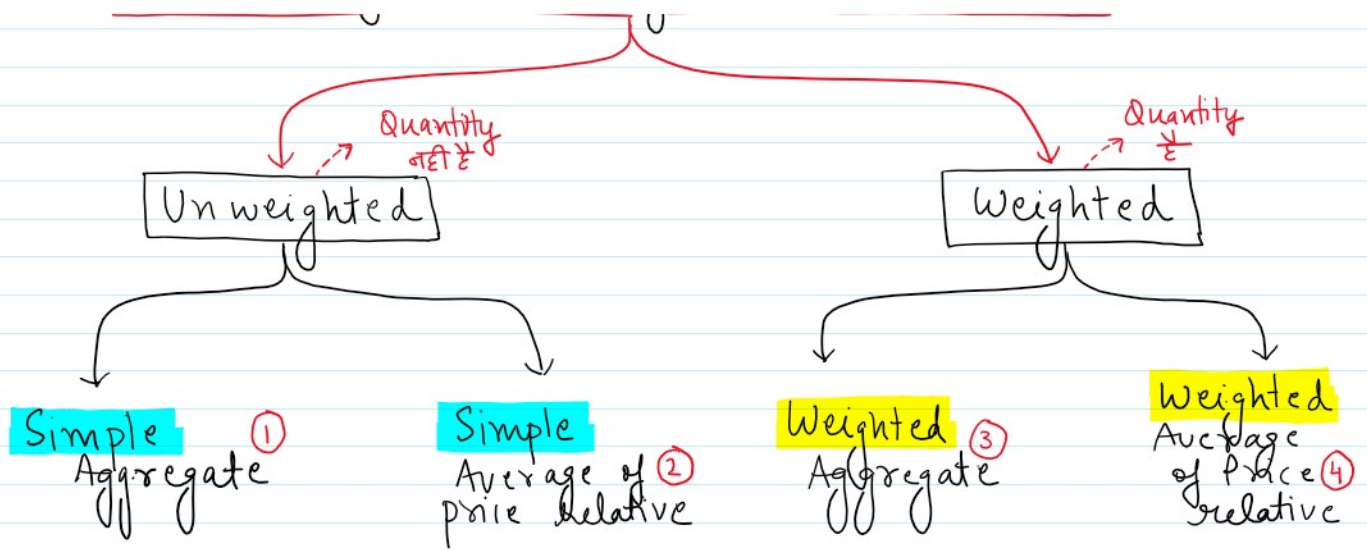 Quantity
नहीं है
Quantity
है
Unweighted
Weighted
Simple ①
Aggregate
Simple
Average of ②
price Relative
Weighted ③
Aggregate
Weighted
Average
of Price ④
relative